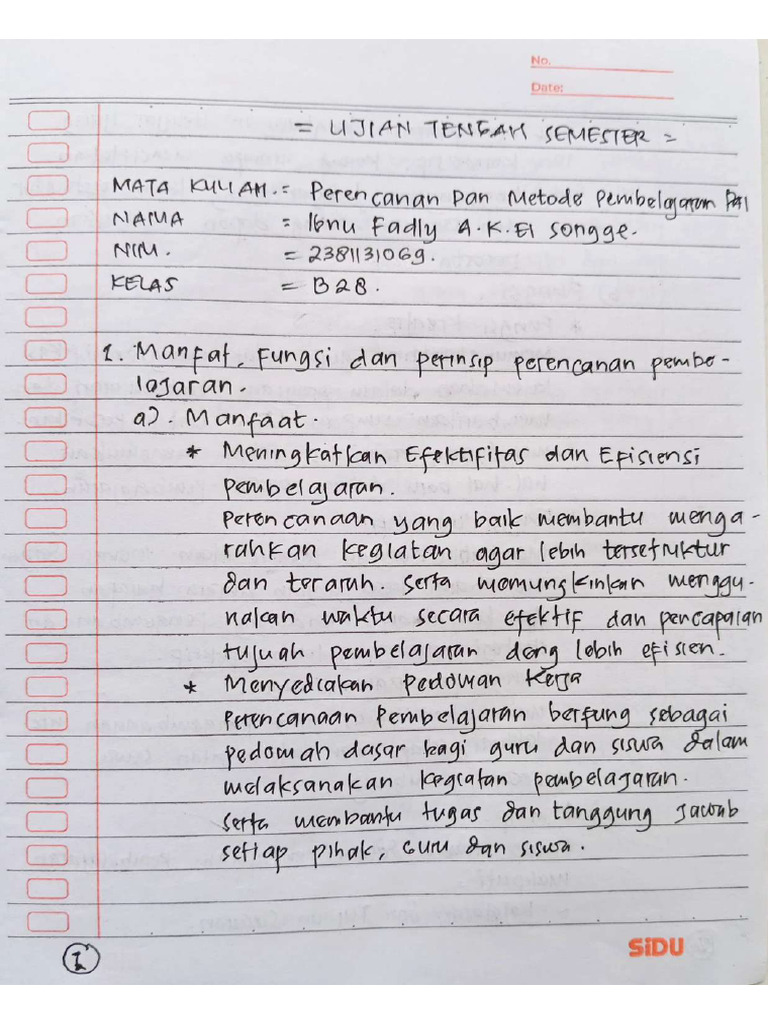 No.
Date:
= UJIAN TENGAH SEMESTER =
MATA KULIAH. = Perencanan Dan Metode Pembelajaran PAI
NAMA = Ibnu Fadly A.K.El Songge.
NIM. = 2381131069.
KELAS = B28.
1. Manfat, Fungsi dan perinsip perencanan pembe-
lajaran.
a). Manfaat.
* Meningkatkan Efektifitas dan Efisiensi
pembelajaran.
perencanaan yang baik membantu menga-
rahkan kegiatan agar lebih tersetruktur
dan terarah. serta memungkinkan menggu-
nakan waktu secara efektif dan pencapaian
tujuah pembelajaran deng lebih efisien.
* Menyediakan pedoman kerja
perencanaan pembelajaran berfung sebagai
pedomah dasar bagi guru dan siswa dalam
melaksanakan kegiatan pembelajaran.
serta membantu tugas dan tanggung jawab
setiap pihak, Guru dan siswa.
SiDU
1